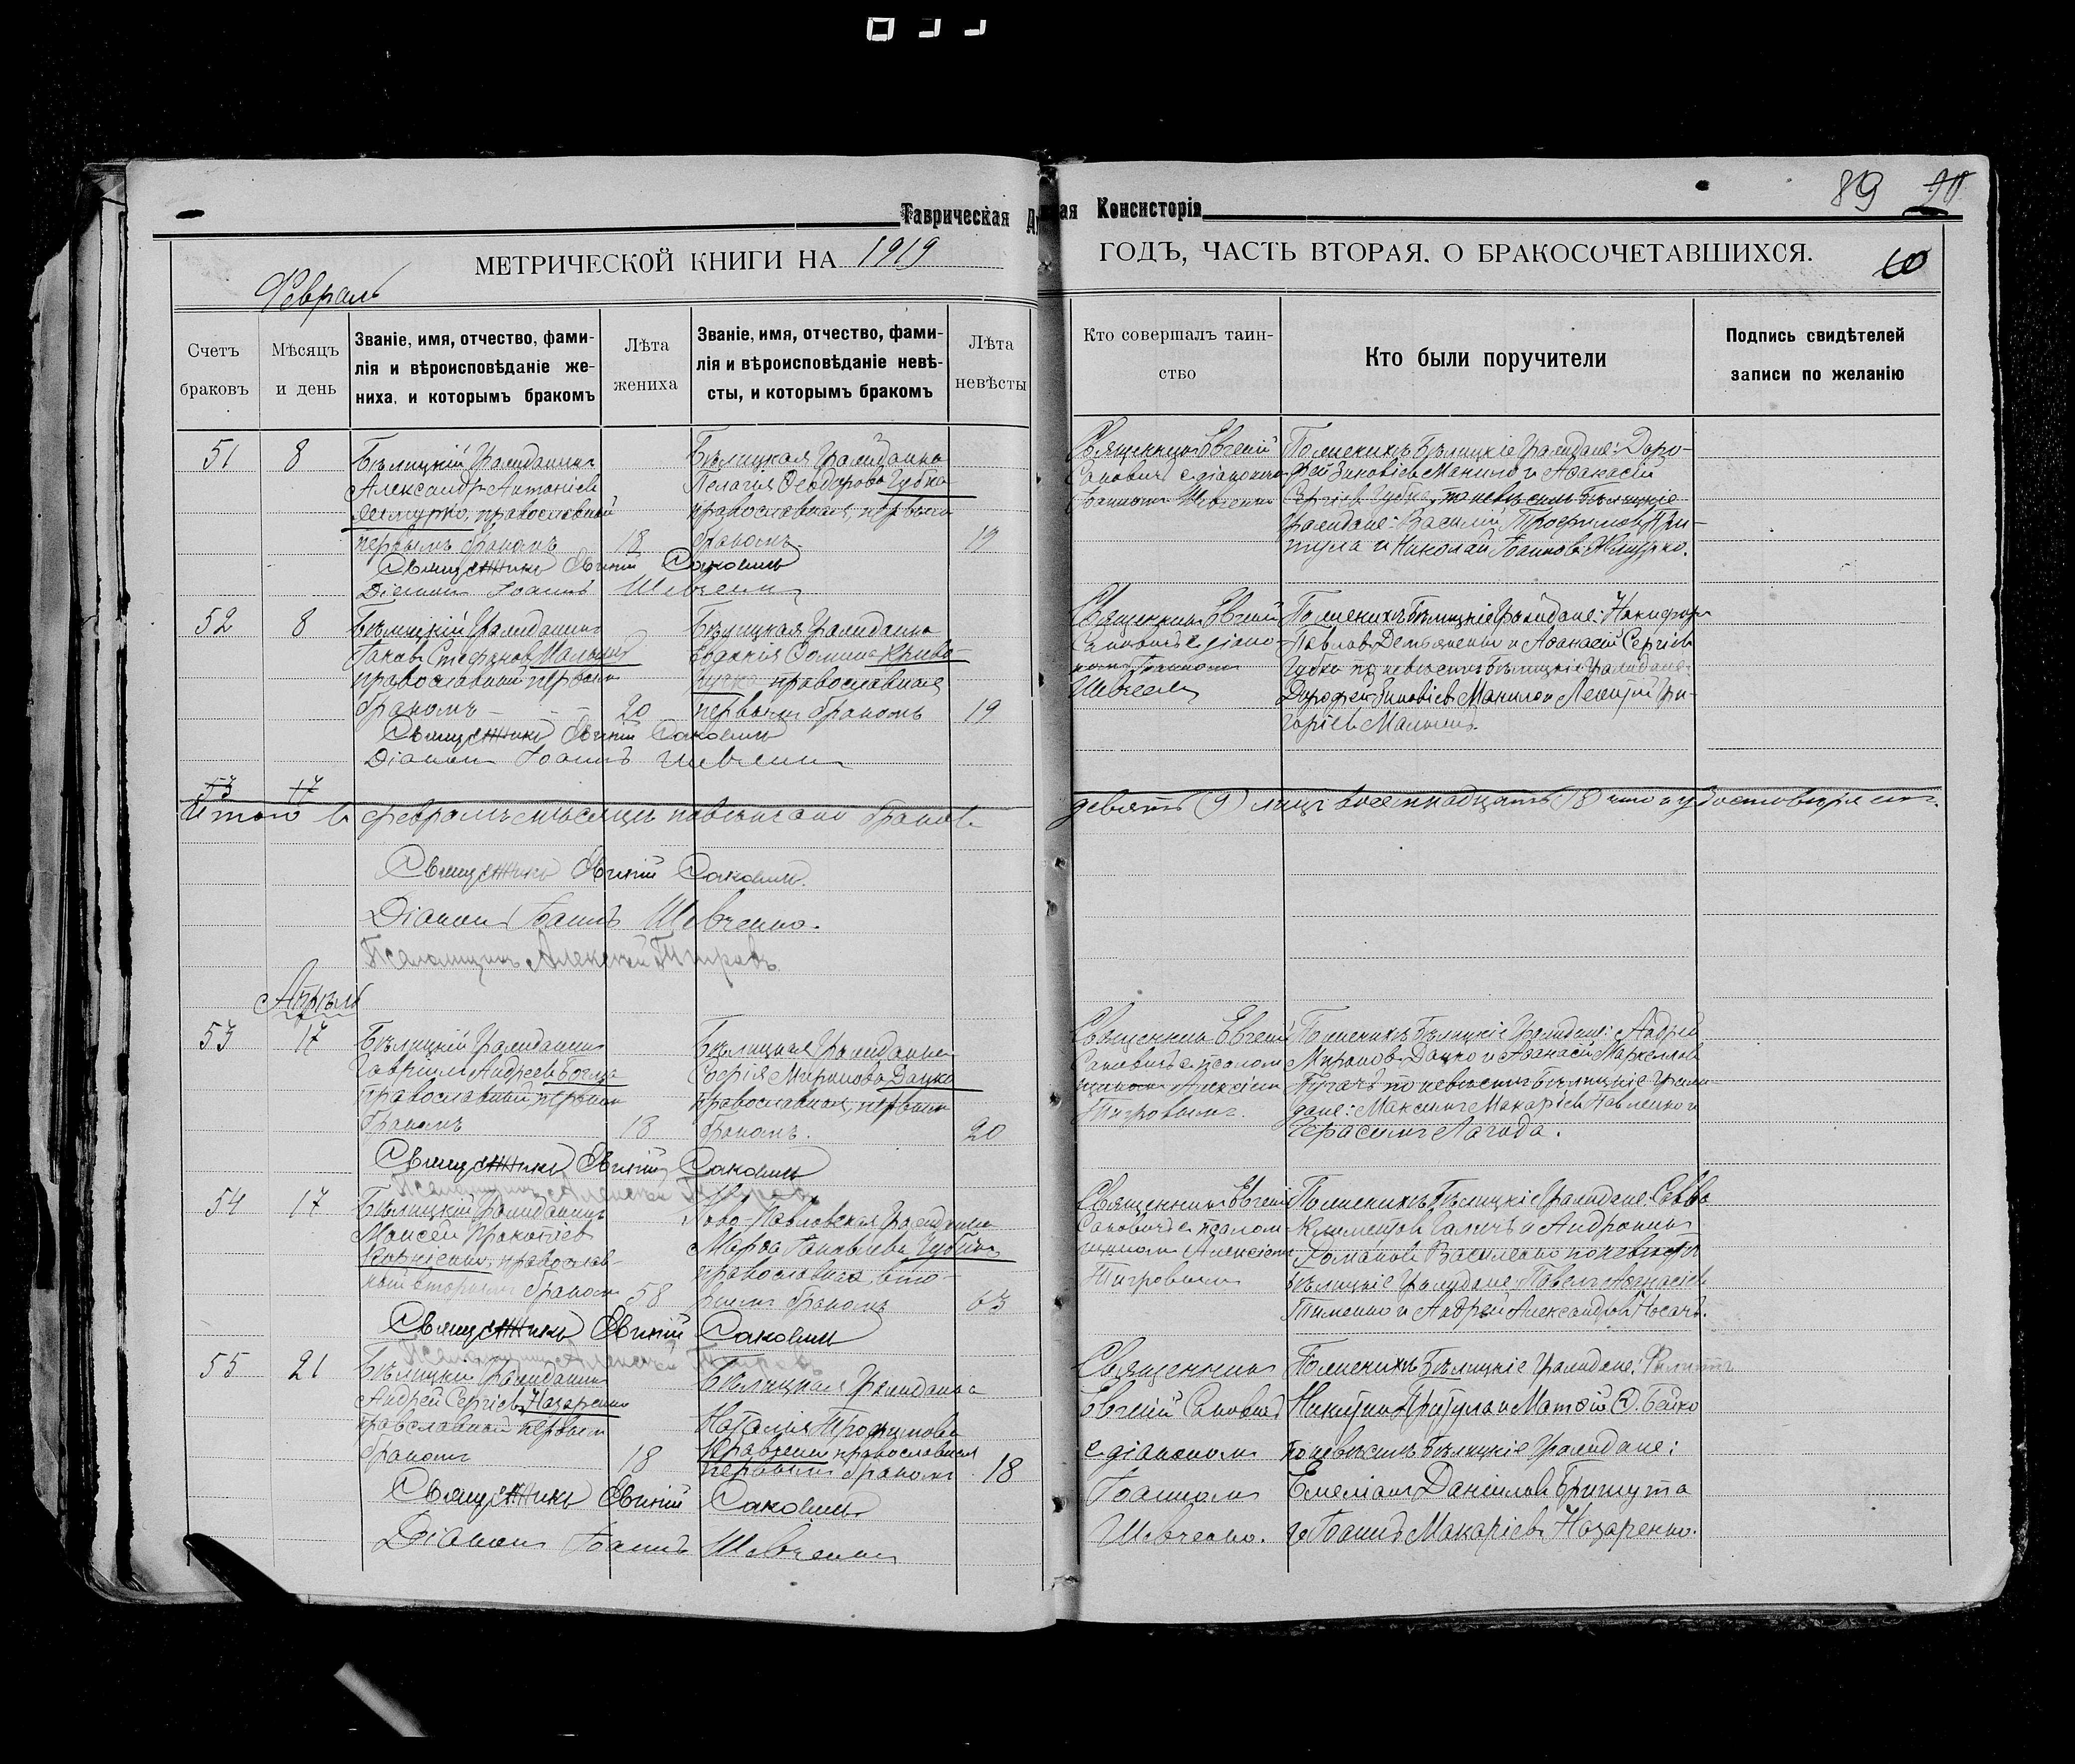 Таврическая Консисторія
89 90
МЕТРИЧЕСКОЙ КНИГИ НА 1919
ГОДЪ, ЧАСТЬ ВТОРАЯ, О БРАКОСОЧЕТАВШИХСЯ.
60
Февраль
Счетъ браковъ
Мѣсяцъ и день
Званіе, имя, отчество, фами-
лія и вѣроисповѣданіе же-
ниха, и которымъ бракомъ
Лѣта
жениха
Званіе, имя, отчество, фами-
лія и вѣроисповѣданіе невѣ-
сты, и которымъ бракомъ
Лѣта
невѣсты
Кто совершалъ таин-
ство
Кто были поручители
Подпись свидѣтелей
записи по желанію
51 8
Бѣлицкій Гражданинъ
Александръ Антоніевъ
православный
первымъ бракомъ 18
Бѣлицкая Гражданка
Пелагія Ѳеодорова Губка
православная, первымъ
бракомъ. 19
Священникъ Евгеній
Саковичъ с діакономъ
Іоанномъ Шевченко
По женихѣ Бѣлицкіе Граждане: Доро-
фей Зиновіевъ Манило и Аѳанасій
Сергіевъ Губка, по невѣстѣ Бѣлицкіе
Граждане: Василій Трофимовъ При-
тула и Николай Іоанновъ
Священникъ Евгеній Саковичъ
Діаконъ Іоаннъ Шевченко
52 8
Бѣлицкій Гражданинъ
Іаковъ Стефановъ Малышъ
православный первымъ
бракомъ 20
Бѣлицкая Гражданка
Евдокія Ѳомина
православная
первымъ бракомъ 19
Священникъ Евгеній
Саковичъ с діако-
номъ Іоанномъ
Шевченко
По женихѣ Бѣлицкіе Граждане: Никифоръ
Павловъ Демьяненко и Аѳанасій Сергіевъ
Губка по невѣстѣ Бѣлицкіе Граждане:
Дорофей Зиновіевъ Манило и Гри-
горіевъ Малышъ.
Священникъ Евгеній Саковичъ
Діаконъ Іоаннъ Шевченко
53 17
Итого в февралѣ мѣсяцѣ повѣнчано браковъ
девять (9) лицъ восемнадцать (18) что и удостовѣряемъ.
Священникъ Евгеній Саковичъ.
Діаконъ Іоаннъ Шевченко.
Псаломщикъ Алексѣй Тигровъ.
Апрѣль
53 17
Бѣлицкій Гражданинъ
Гавріилъ Андреевъ
православный, первымъ
бракомъ 18
Бѣлицкая Гражданка
Миронова Дацко
православная, первымъ
бракомъ. 20
Священникъ Евгеній
Саковичъ с псалом-
щикомъ Алексѣемъ
Тигровымъ.
По женихѣ Бѣлицкіе Граждане: Андрей
Мироновъ Дацко и Аѳанасій Маркелловъ
Пугачъ по невѣстѣ Бѣлицкіе Граж-
дане: Максимъ Макаріевъ Павленко и
Герасимъ Лагода.
Священникъ Евгеній Саковичъ
Псаломщикъ Алексѣй Тигровъ
54 17
Бѣлицкій Гражданинъ
Моисей Прокопіевъ
Корніенко, православ-
ный вторымъ бракомъ 58
Ново-Павловская Гражданка
Марѳа Іаковлева
православная, вто-
рымъ бракомъ 63
Священникъ Евгеній
Саковичъ с псалом-
щикомъ Алексѣемъ
Тигровымъ
По женихѣ Бѣлицкіе Граждане: Савва
Климентовъ и Андроникъ
Романовъ Василенко по невѣстѣ
Бѣлицкіе Граждане: Павелъ Аѳанасіевъ
Тименко и Андрей Александровъ Носачъ.
Священникъ Евгеній Саковичъ
Псаломщикъ Алексѣй Тигровъ
55 21
Бѣлицкій Гражданинъ
Андрей Сергіевъ Назаренко
православный первымъ
бракомъ 18
Бѣлицкая Гражданка
Наталія Трофимова
Кравченко православная
первымъ бракомъ 18
Священникъ
Евгеній Саковичъ
с діакономъ
Іоанномъ
Шевченко.
По женихѣ Бѣлицкіе Граждане: Филиппъ
Никитинъ Притула и Матѳій Ѳ. Бойко
по невѣстѣ Бѣлицкіе Граждане:
Емеліанъ Даніиловъ
и Іоаннъ Макаріевъ Назаренко.
Священникъ Евгеній Саковичъ
Діаконъ Іоаннъ Шевченко